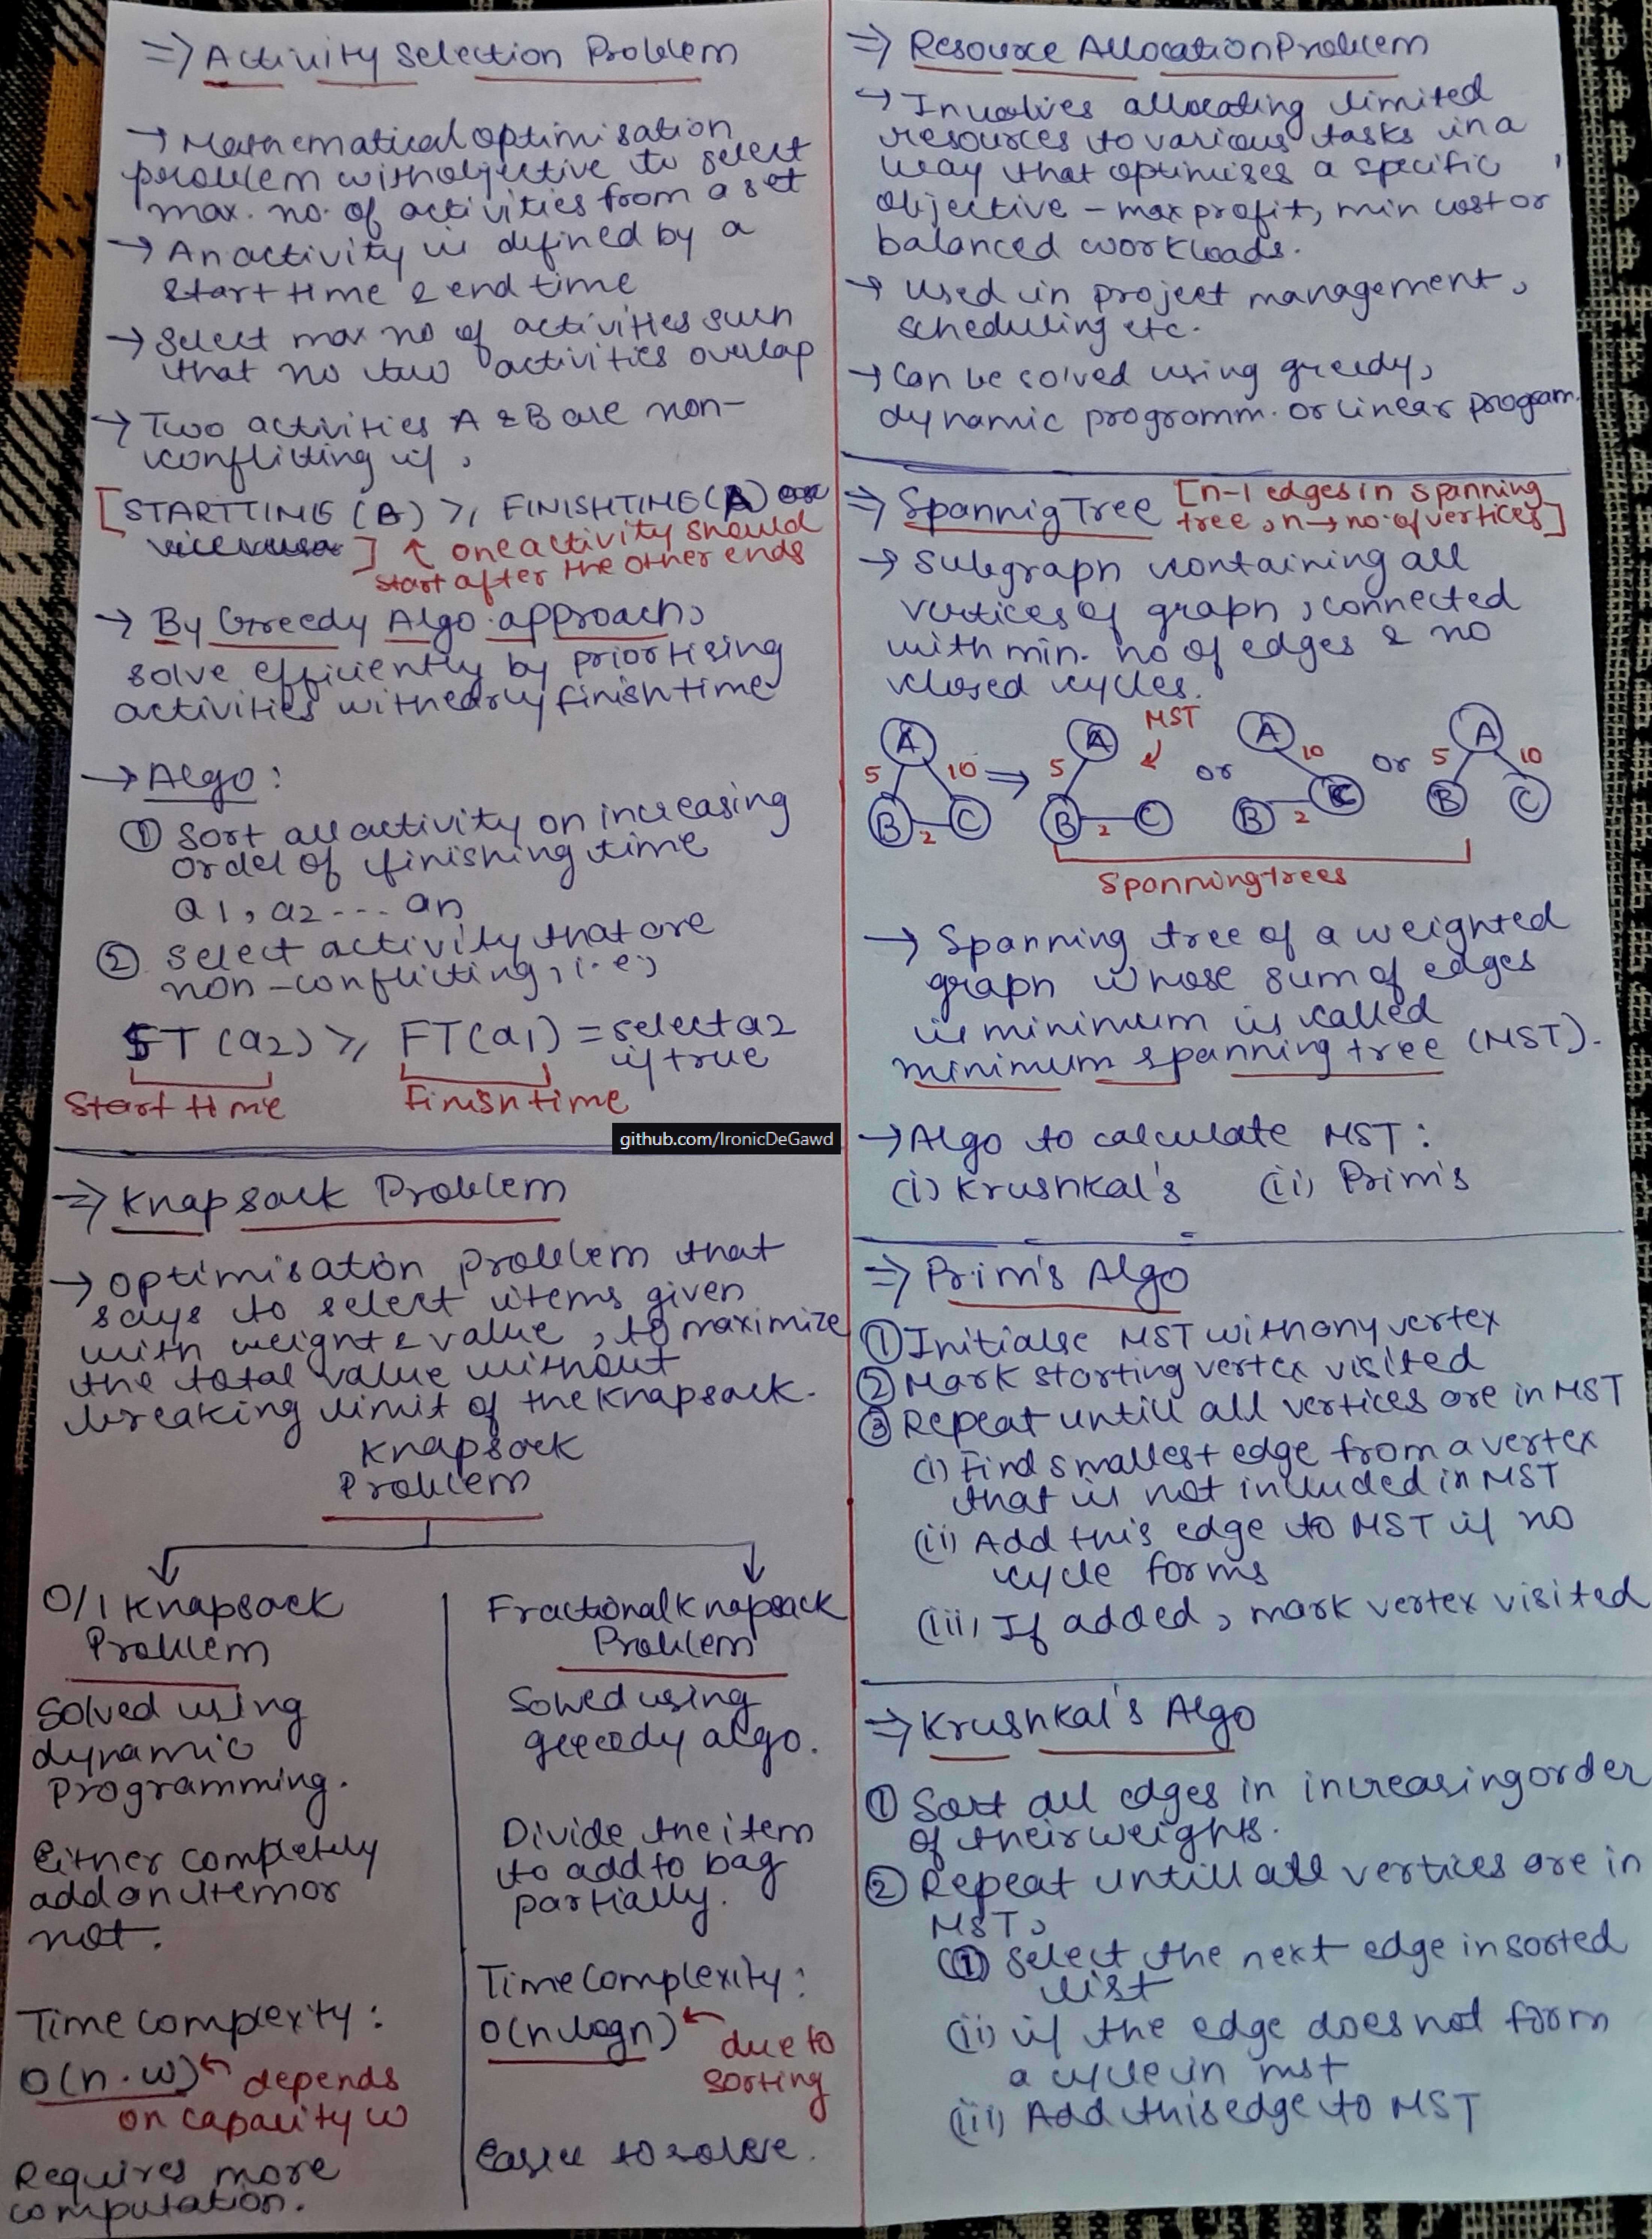 => Activity Selection Problem
→ Mathematical optimisation
problem with objective to select
max. no. of activities from a set
→ An activity is defined by a
start time & end time
→ Select max no of activities such
that no two activities overlap
→ Two activities A & B are non-
conflicting if,
[STARTTIME (B) >, FINISHTIME (A) or
viceversa] ↑ one activity should
start after the other ends
→ By Greedy Algo approach,
solve efficiently by prioritising
activities with early finish time
→ Algo:
① Sort all activity on increasing
order of finishing time
a1, a2 --- an
② Select activity that are
non-conflicting, i.e,
ST (a2) >, FT(a1) = select a2
if true
Start time Finish time
=> Knapsack Problem
→ Optimisation problem that
says to select items given
with weight & value, to maximize
the total value without
breaking limit of the knapsack.
Knapsack
Problem
0/1 Knapsack
Problem
Solved using
dynamic
Programming.
Either completely
add an item or
not.
Time complexity:
O(n.w) ← depends
on capacity w
Requires more
computation.
Fractional Knapsack
Problem
Solved using
greeedy algo.
Divide the item
to add to bag
partially.
Time complexity:
O(n logn) ← due to
sorting
Easier to solve.
github.com/IronicDeGawd
=> Resource Allocation Problem
→ Involves allocating limited
resources to various tasks in a
way that optimises a specific
objective - max profit, min cost or
balanced workloads.
→ Used in project management,
scheduling etc.
→ Can be solved using greedy,
dynamic programm. or linear program.
=> Spannig Tree [n-1 edges in spanning
tree, n → no. of vertices]
→ Subgraph containing all
vertices of graph, connected
with min. no of edges & no
closed cycles.
MST
A A A A
5 10 => 5 or 10 or 5 10
B 2 C B 2 C B 2 C B C
Spanning trees
→ Spanning tree of a weighted
graph whose sum of edges
is minimum is called
minimum spanning tree (MST).
→ Algo to calculate MST:
(i) Krushkal's (ii) Prim's
=> Prim's Algo
① Initialse MST with any vertex
② Mark starting vertex visited
③ Repeat untill all vertices are in MST
(i) Find smallest edge from a vertex
that is not included in MST
(ii) Add this edge to MST if no
cycle forms
(iii) If added, mark vertex visited
=> Krushkal's Algo
① Sort all edges in increasing order
of their weights.
② Repeat untill all vertices are in
MST,
(i) Select the next edge in sorted
list
(ii) if the edge does not form
a cycle in mst
(iii) Add this edge to MST